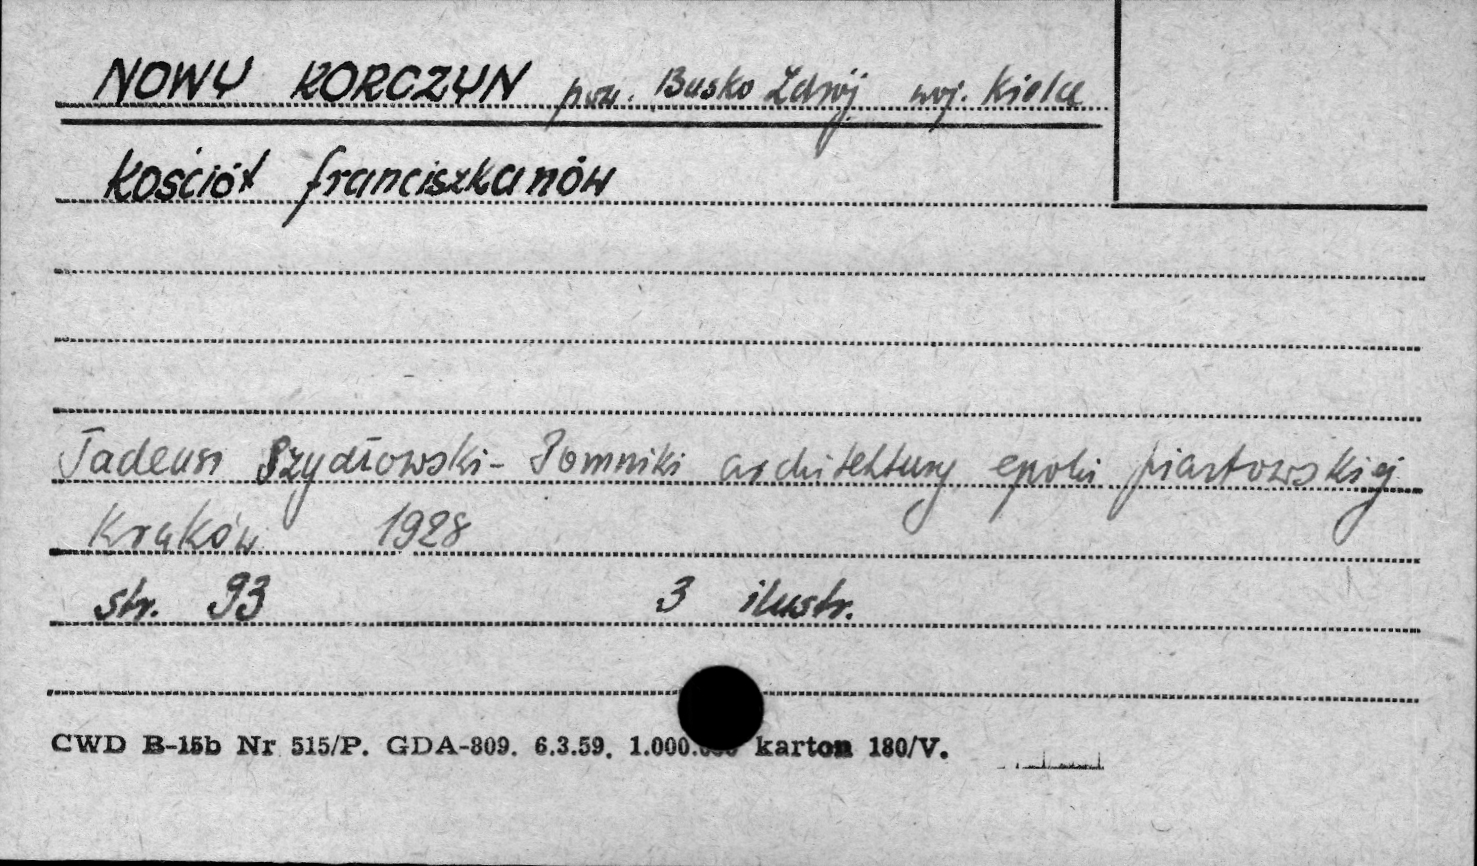 NOWY KORCZYN pow. Busko Zdrój woj. Kielce
Kościół franciszkanów
Tadeusz Szydłowski - Pomniki architektury epoki piastowskiej
Kraków 1928
str. 93 3 ilustr.
CWD B-15b Nr 515/P. GDA-809. 6.3.59. 1.000.000 karton 180/V.